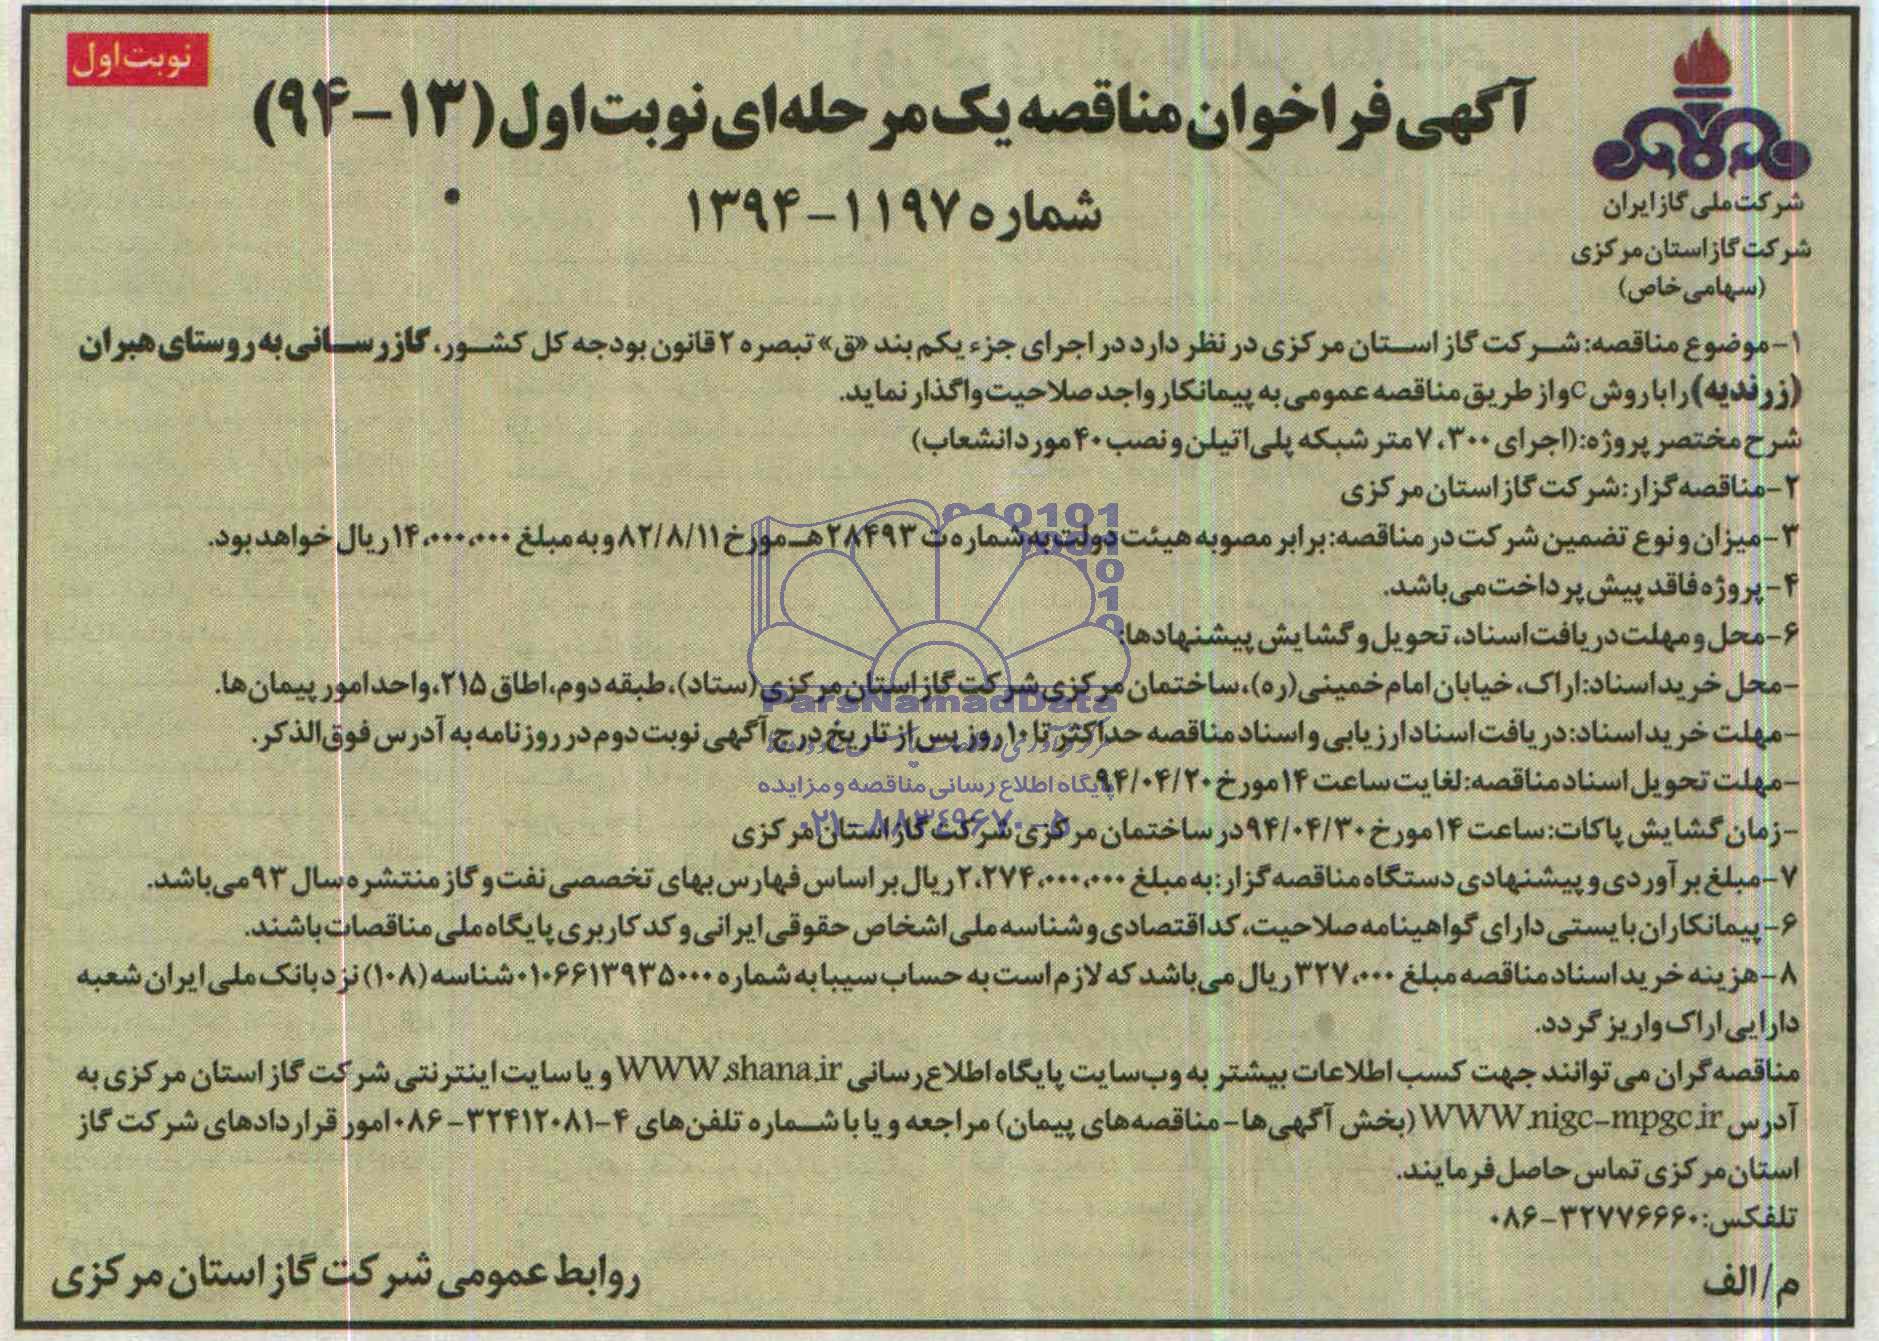 نوبت اول
آگهی فراخوان مناقصه یک مرحله‌ای نوبت اول (۱۳-۹۴)
شماره ۱۱۹۷-۱۳۹۴
شرکت ملی گاز ایران
شرکت گاز استان مرکزی
(سهامی خاص)
۱-موضوع مناقصه: شرکت گاز استان مرکزی در نظر دارد در اجرای جزء یکم بند «ق» تبصره ۲ قانون بودجه کل کشور، گازرسانی به روستای هبران
(زرندیه) را با روش C و از طریق مناقصه عمومی به پیمانکار واجد صلاحیت واگذار نماید.
شرح مختصر پروژه: (اجرای ۷،۳۰۰ متر شبکه پلی اتیلن و نصب ۴۰ مورد انشعاب)
۲-مناقصه گزار: شرکت گاز استان مرکزی
۳-میزان و نوع تضمین شرکت در مناقصه: برابر مصوبه هیئت دولت به شماره ت ۲۸۴۹۳هـ مورخ ۸۲/۸/۱۱ و به مبلغ ۱۴،۰۰۰،۰۰۰ ریال خواهد بود.
۴-پروژه فاقد پیش پرداخت می‌باشد.
۶-محل و مهلت دریافت اسناد، تحویل و گشایش پیشنهادها:
-محل خرید اسناد: اراک، خیابان امام خمینی (ره)، ساختمان مرکزی شرکت گاز استان مرکزی (ستاد)، طبقه دوم، اطاق ۲۱۵، واحد امور پیمان‌ها.
-مهلت خرید اسناد: دریافت اسناد ارزیابی و اسناد مناقصه حداکثر تا ۱۰ روز پس از تاریخ درج آگهی نوبت دوم در روزنامه به آدرس فوق الذکر.
-مهلت تحویل اسناد مناقصه: لغایت ساعت ۱۴ مورخ ۹۴/۰۴/۲۰
-زمان گشایش پاکات: ساعت ۱۴ مورخ ۹۴/۰۴/۳۰ در ساختمان مرکزی شرکت گاز استان مرکزی
۷-مبلغ برآوردی و پیشنهادی دستگاه مناقصه گزار: به مبلغ ۲،۲۷۴،۰۰۰،۰۰۰ ریال بر اساس فهارس بهای تخصصی نفت و گاز منتشره سال ۹۳ می‌باشد.
۶-پیمانکاران بایستی دارای گواهینامه صلاحیت، کد اقتصادی و شناسه ملی اشخاص حقوقی ایرانی و کد کاربری پایگاه ملی مناقصات باشند.
۸-هزینه خرید اسناد مناقصه مبلغ ۳۲۷،۰۰۰ ریال می‌باشد که لازم است به حساب سیبا به شماره ۰۱۰۶۶۱۳۹۳۵۰۰۰ شناسه (۱۰۸) نزد بانک ملی ایران شعبه
دارایی اراک واریز گردد.
مناقصه گران می توانند جهت کسب اطلاعات بیشتر به وب سایت پایگاه اطلاع رسانی WWW.shana.ir و یا سایت اینترنتی شرکت گاز استان مرکزی به
آدرس WWW.nigc-mpgc.ir (بخش آگهی ها - مناقصه‌های پیمان) مراجعه و یا با شماره تلفن‌های ۴-۳۲۴۱۲۰۸۱-۰۸۶ امور قراردادهای شرکت گاز
استان مرکزی تماس حاصل فرمایند.
تلفکس: ۳۲۷۷۶۶۶۰-۰۸۶
م/الف
روابط عمومی شرکت گاز استان مرکزی
ParsNamadData
پایگاه اطلاع رسانی مناقصه و مزایده
۰۲۱-۸۸۳۴۹۶۷۰-۵